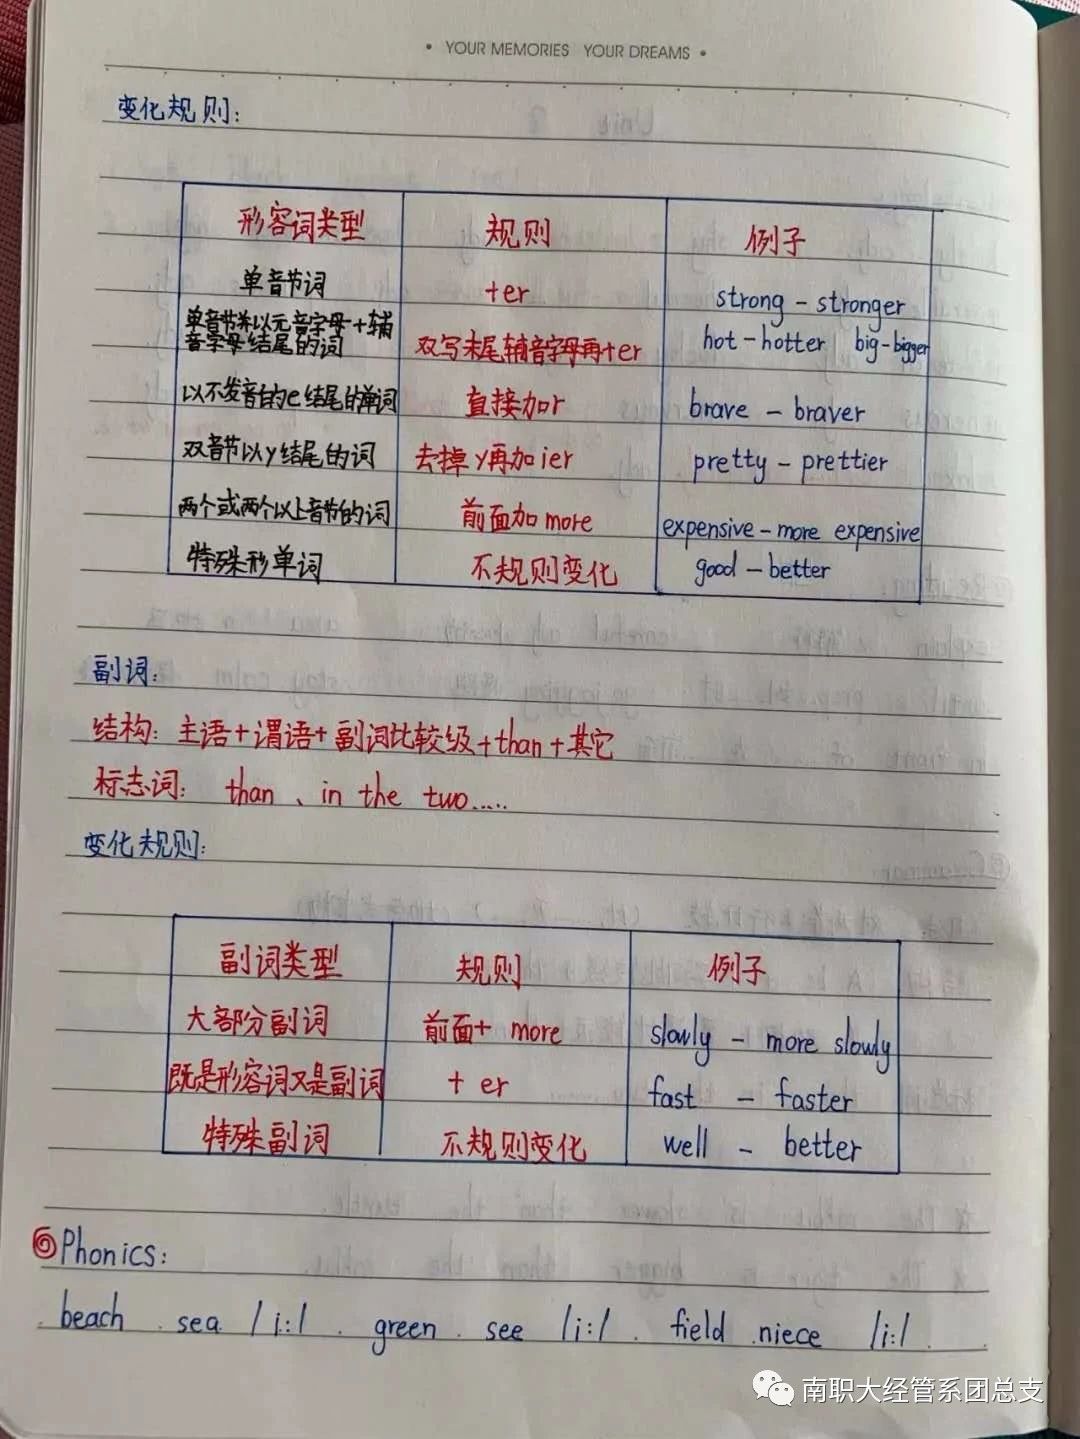 • YOUR MEMORIES YOUR DREAMS •
变化规则:
形容词类型 规则 例子
单音节词 +er strong - stronger
单音节并以元音字母+辅音字母结尾的词 双写末尾辅音字母再+er hot-hotter big-bigger
以不发音的e结尾的单词 直接加r brave - braver
双音节以y结尾的词 去掉y再加ier pretty - prettier
两个或两个以上音节的词 前面加more expensive-more expensive
特殊形单词 不规则变化 good - better
副词:
结构: 主语+谓语+副词比较级+than+其它
标志词: than、in the two.....
变化规则:
副词类型 规则 例子
大部分副词 前面+ more slowly - more slowly
既是形容词又是副词 + er fast - faster
特殊副词 不规则变化 well - better
Phonics:
beach . sea /i:/ . green . see /i:/ . field .niece /i:/
南职大经管系团总支